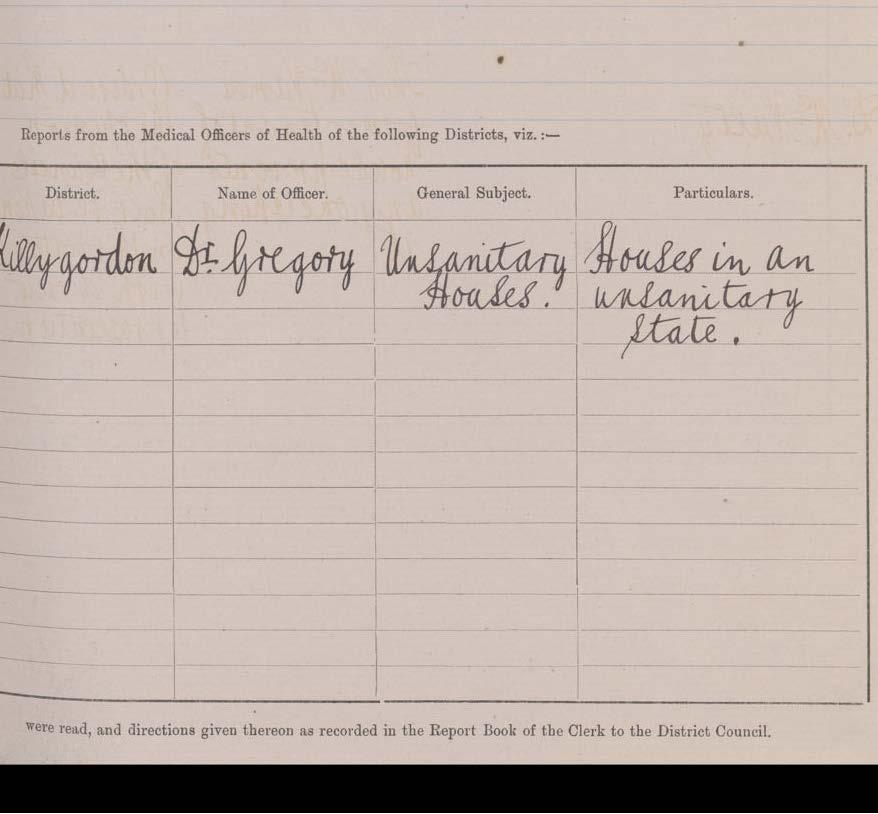 Reports from the Medical Officers of Health of the following Districts, viz. :—
District. Name of Officer. General Subject. Particulars.
Killygordon Dr. Gregory Unsanitary Houses in an
Houses. unsanitary
State.
were read, and directions given thereon as recorded in the Report Book of the Clerk to the District Council.